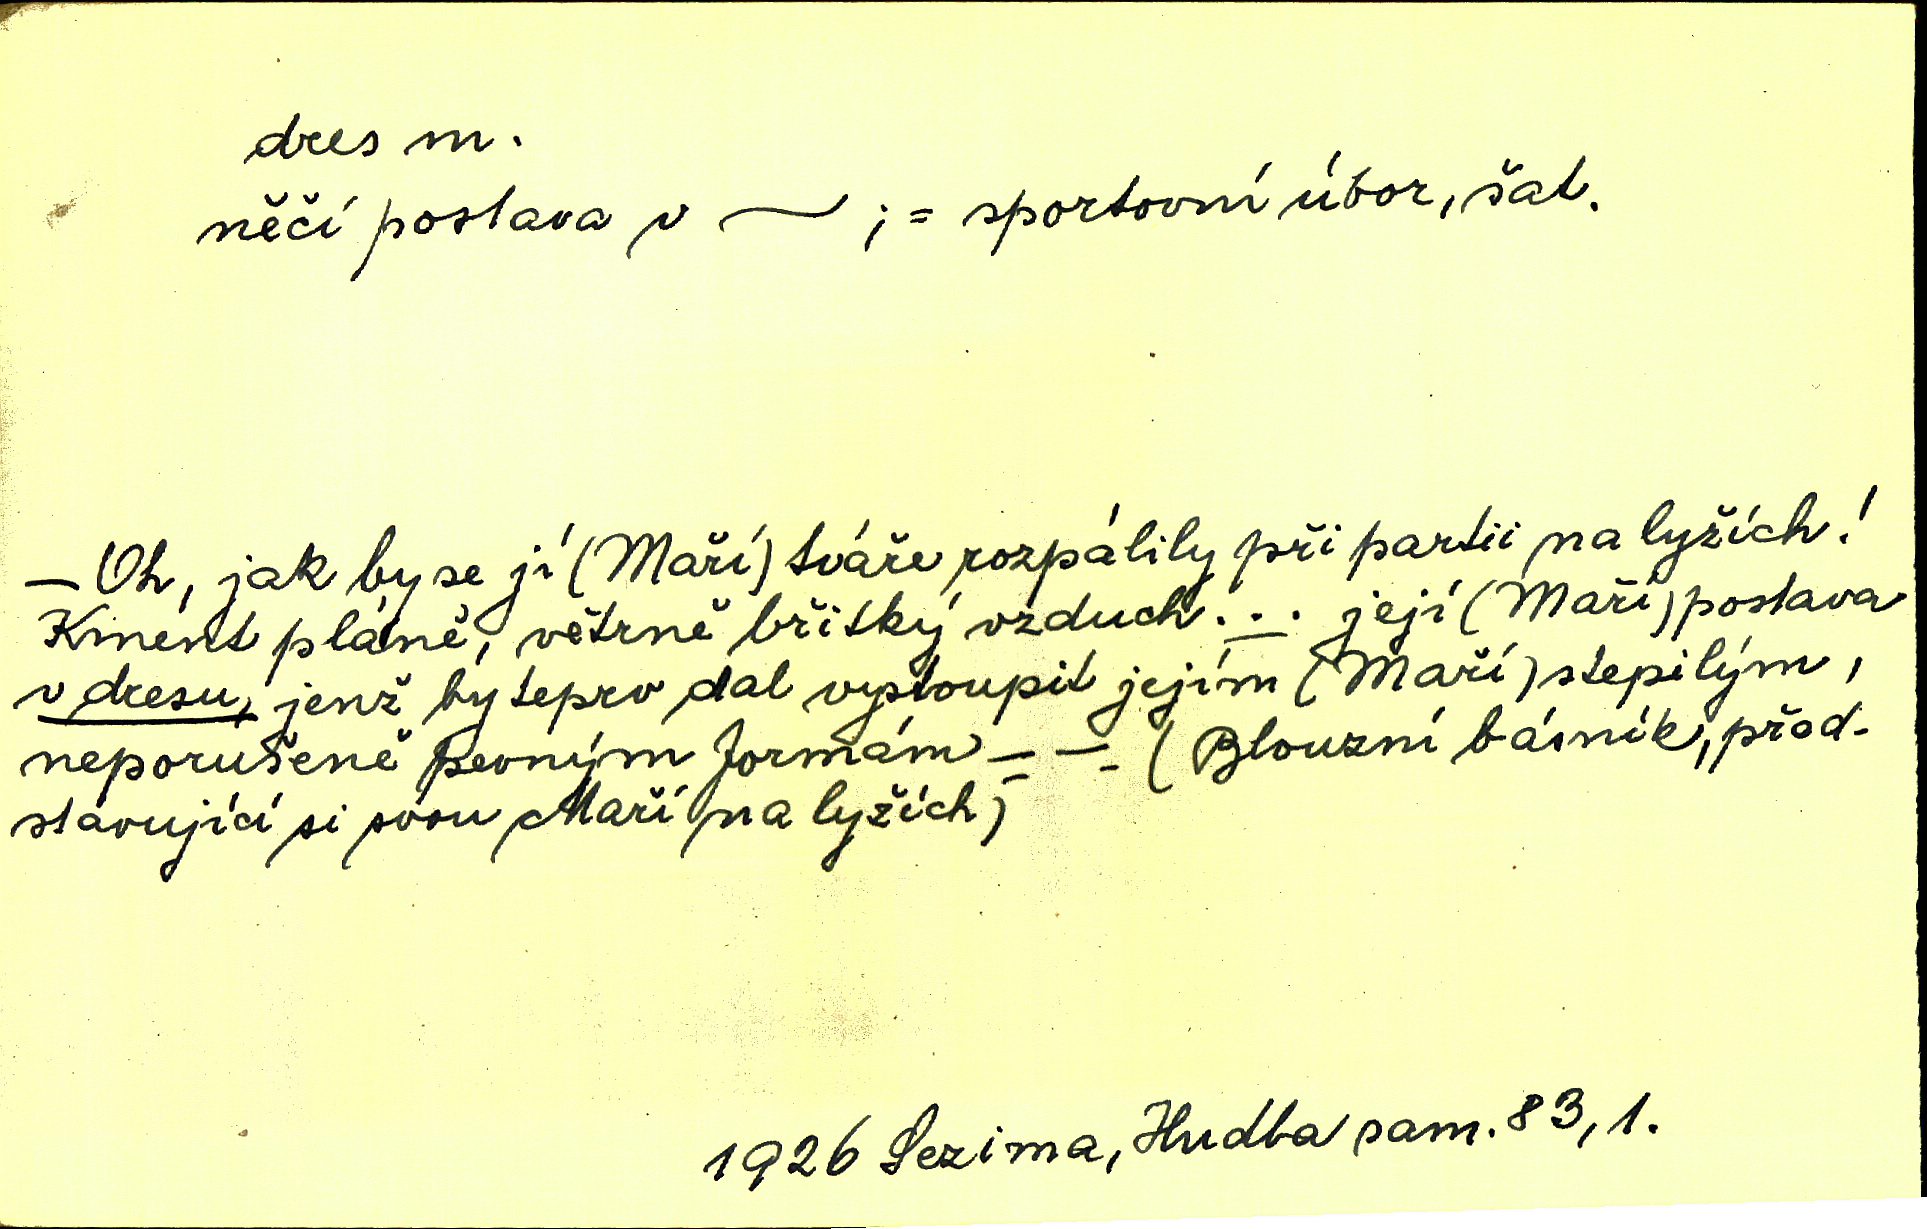 dres m.
něčí postava v ~ ; = sportovní úbor, šat.
— Oh, jak by se jí (Maří) tváře rozpálily při partii na lyžích!
Kment pláně, větrně břitký vzduch... její (Maří) postava
v dresu, jenž by teprv dal vystoupit jejím (Maří) stepilým,
neporušeně pevným formám — — (Blouzní básník, před-
stavující si svou Maří na lyžích)
1926 Sezima, Hudba sam. 83, 1.